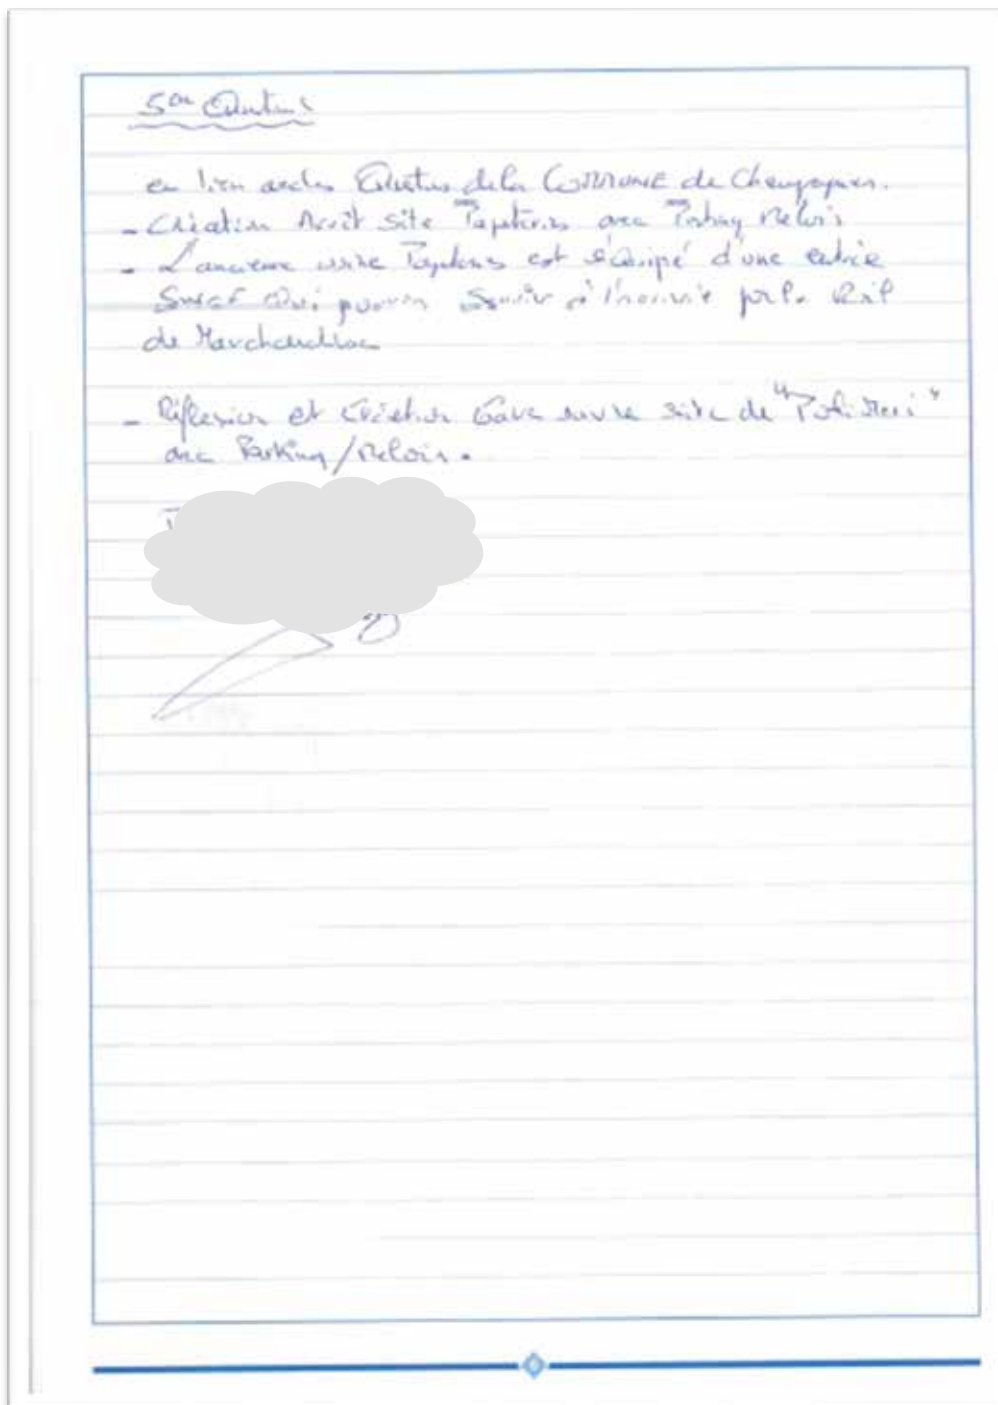 5em
en lien avec les de la COMMUNE de
- Création Arrêt Site Papeteries avec Parking Relais
- L'ancienne usine Papeteries est s'équipé d'une entrée
SNCF Qui pourra Servir à l'avenir pour le
de Marchandises
- Réflexion et Création Gare sur le site de "
avec Parking/Relais.